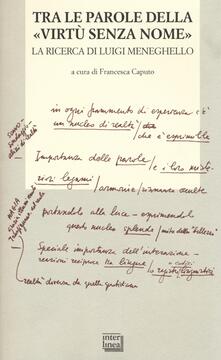 TRA LE PAROLE DELLA
«VIRTÙ SENZA NOME»
LA RICERCA DI LUIGI MENEGHELLO
a cura di Francesca Caputo
in ogni frammento di esperienza c'è
un nucleo di realtà
che è esprimibile
Importanza delle parole
e i loro misteriosi legami
armonie
portandolo alla luce - esprimendo
questo nucleo splende
mito della
Speciale importanza dell'interazione
reciproca tra lingue
realtà diversa da quella
inter
linea